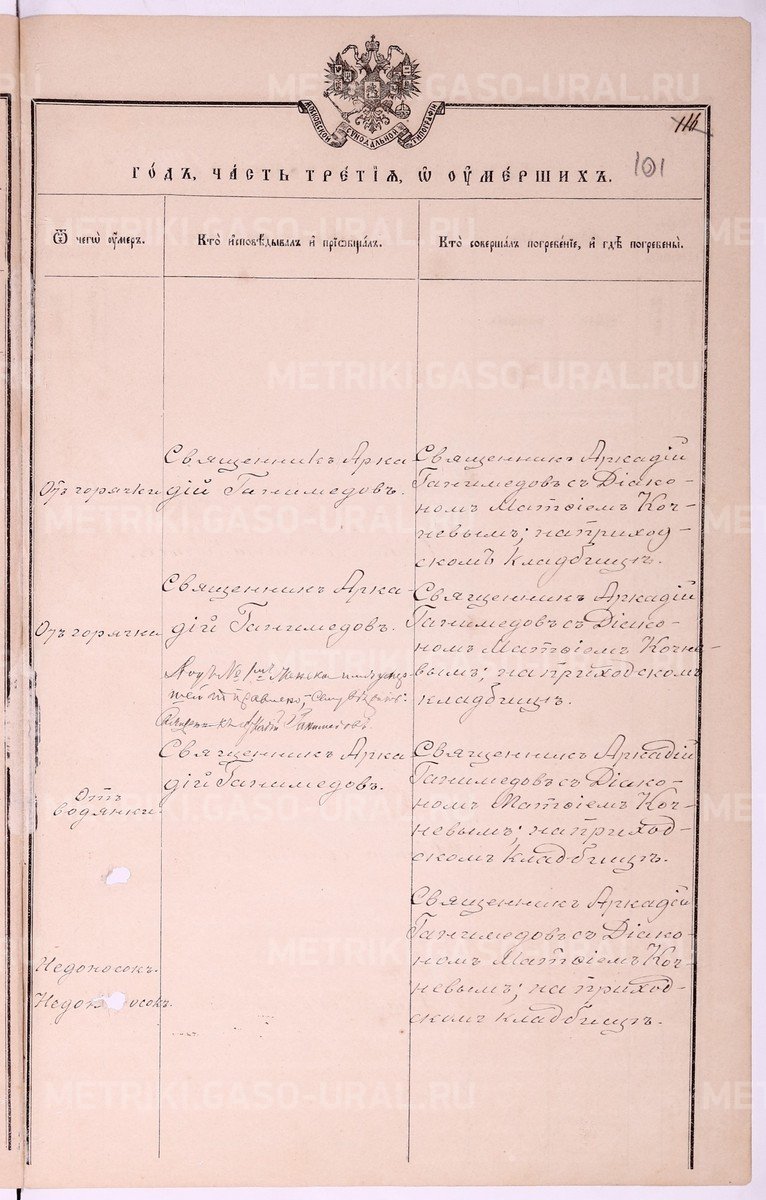 МОСКОВСКОЙ СѴНОДАЛЬНОЙ ТИПОГРАФІИ
116
101
ГО́ДЪ, ЧА́СТЬ ТРЕ́ТІѦ, Ѡ҆ ОУ҆МЕ́РШИХЪ.
Ѿ чегѡ̀ оу҆́меръ.
Кто̀ и҆сповѣ́дывалъ и҆ прїѡбща́лъ.
Кто̀ соверша́лъ погребе́нїе, и҆ гдѣ̀ погребены̀.
Отъ горячки
Священникъ Арка
дій Ганимедовъ.
Священникъ Аркадій
Ганимедовъ съ Діако-
номъ Матѳіемъ Коч-
невымъ; на приход-
скомъ кладбищѣ.
Отъ горячки
Священникъ Арка-
дій Ганимедовъ.
Священникъ Аркадій
Ганимедовъ съ Діако-
номъ Матѳіемъ Кочне-
вымъ; на приходскомъ
кладбищѣ.
Подъ №
Ганимедовъ
Отъ
водянки.
Священникъ Арка
дій Ганимедовъ.
Священникъ Аркадій
Ганимедовъ съ Діако-
номъ Матѳіемъ Коч-
невымъ; на приход-
скомъ кладбищѣ.
Недоносокъ.
Недоносокъ.
Священникъ Аркадій
Ганимедовъ съ Діако-
номъ Матѳіемъ Коч-
невымъ; на приход-
скомъ кладбищѣ.
METRIKI.GASO-URAL.RU